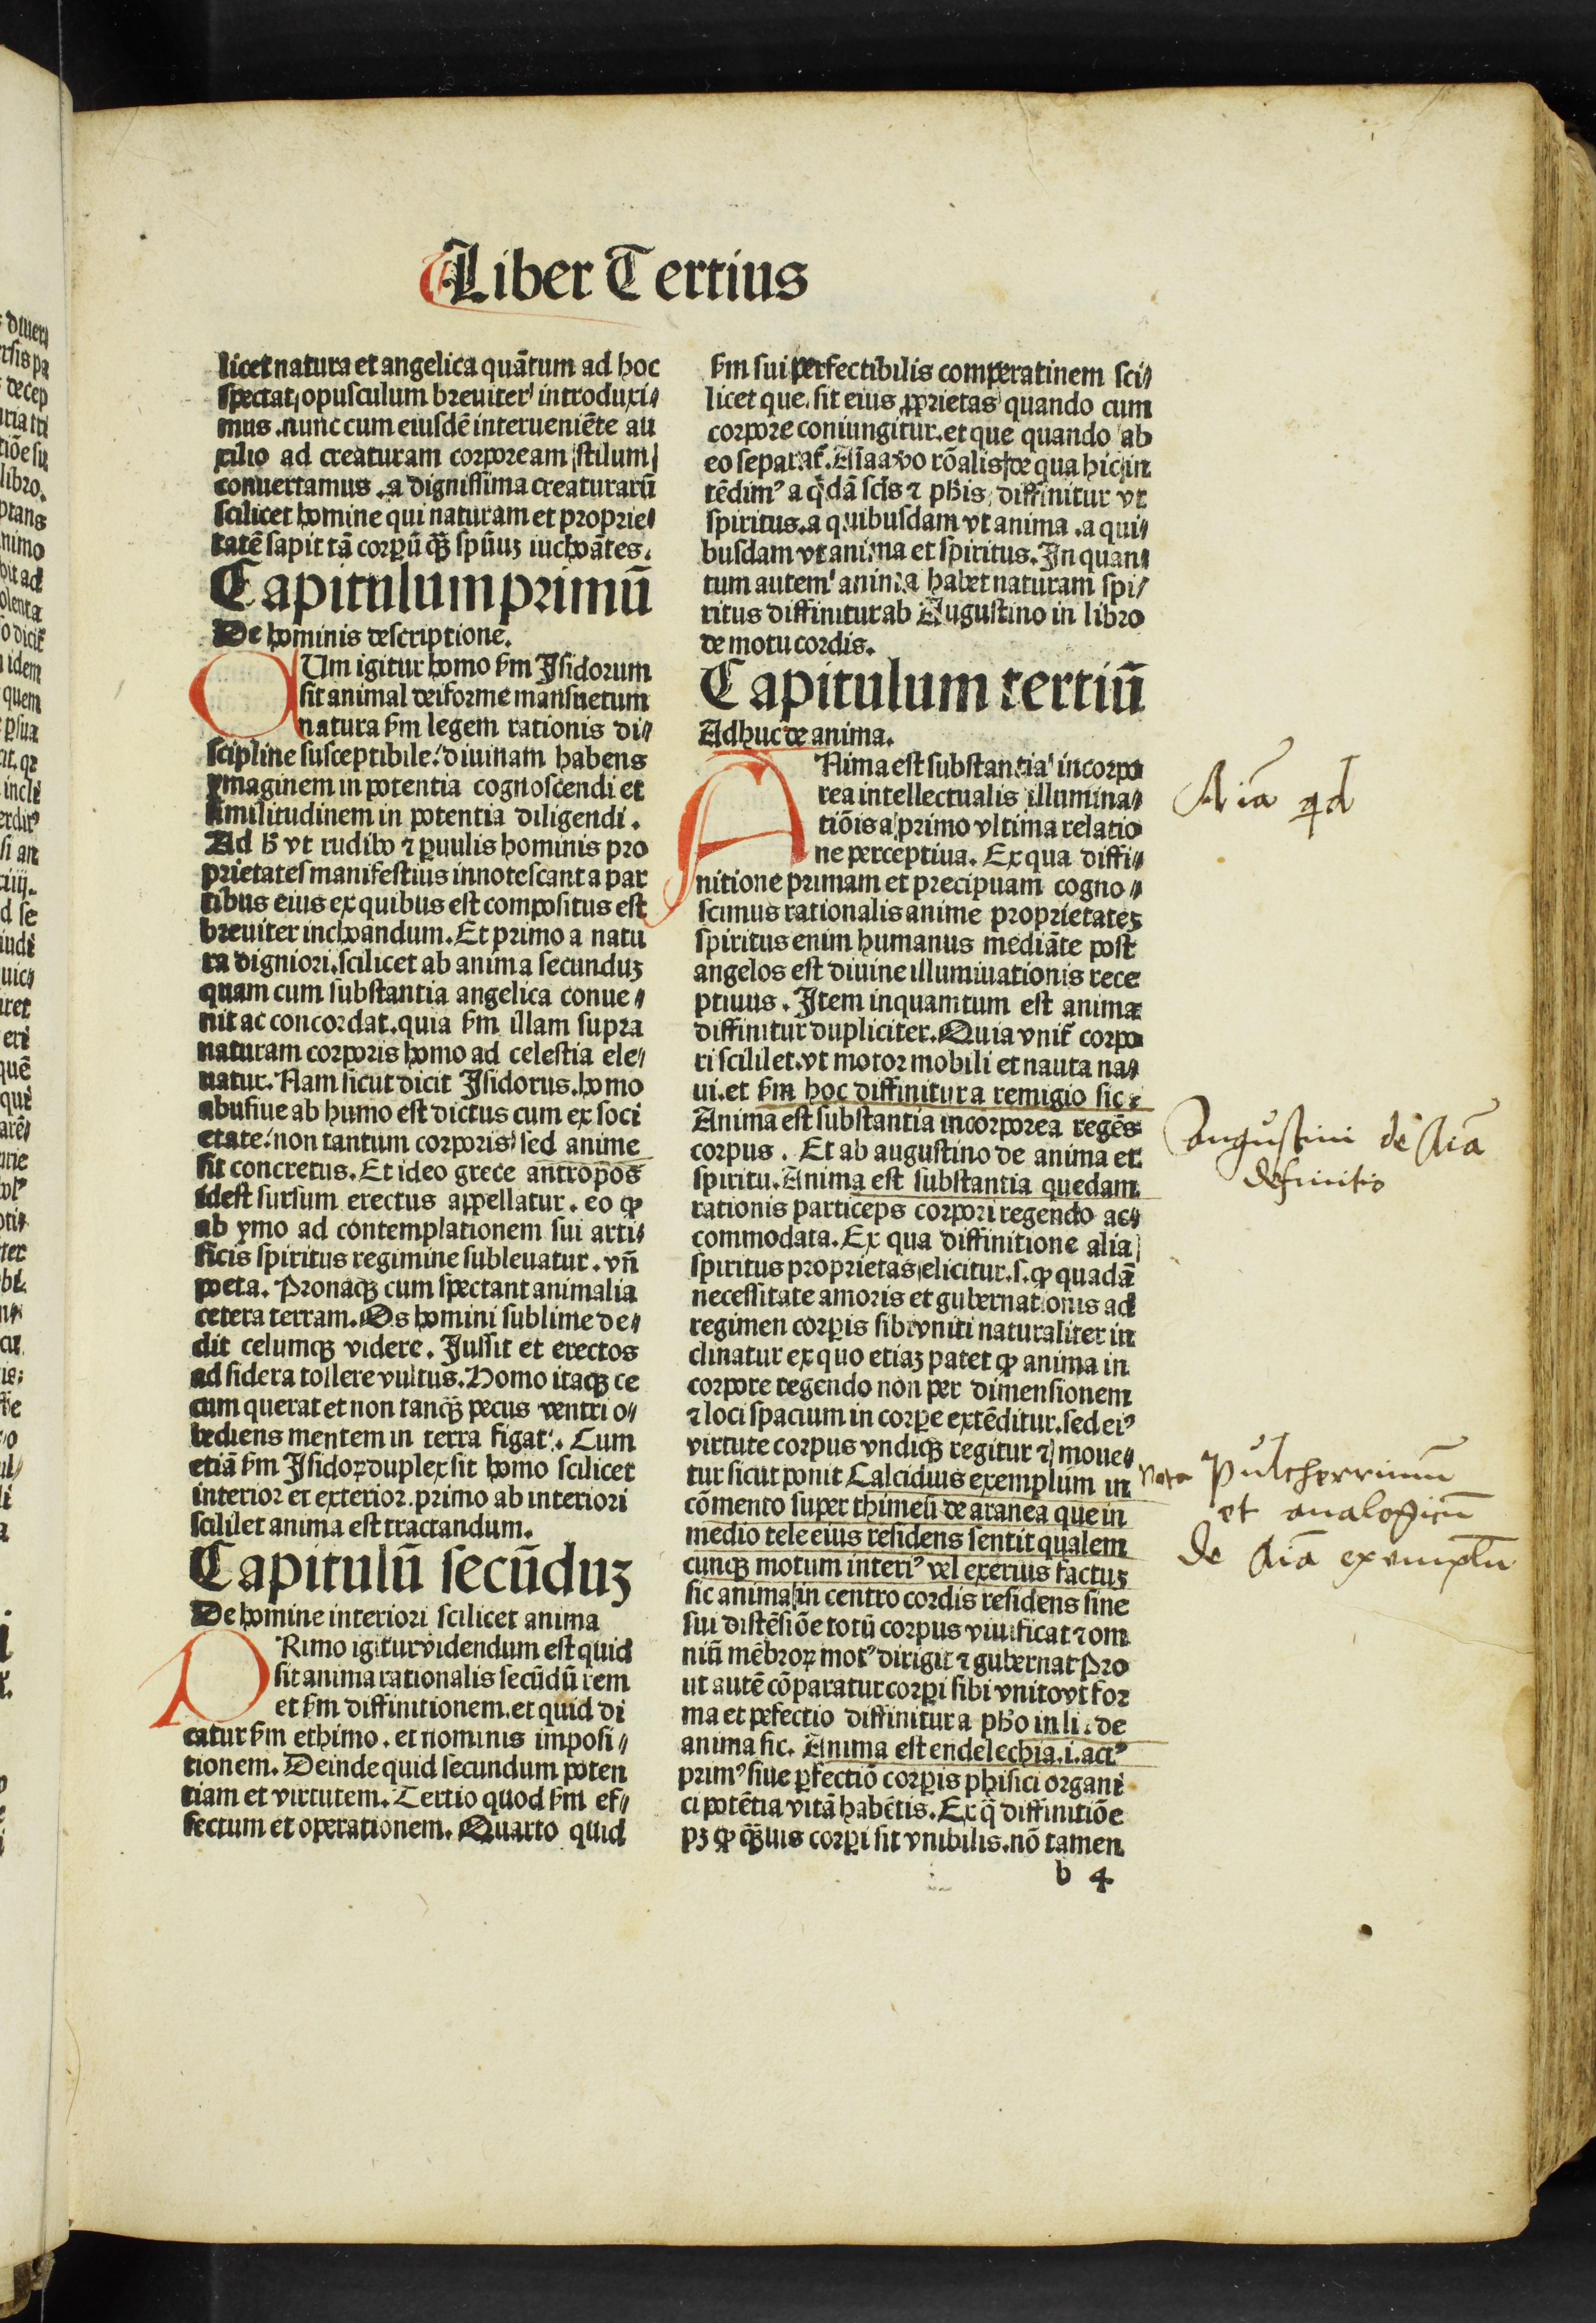 Liber Tertius
licet natura et angelica quātum ad hoc
spectat, opusculum breuiter introduxi⸗
mus. nunc cum eiusdē interueniēte au
xilio ad creaturam corpoream stilum
conuertamus. a dignissima creaturarū
scilicet homine qui naturam et proprie⸗
tatē sapit tā corꝑū qꝫ̄ spūuꝫ inchoātes.
Capitulum primū
De hominis descriptione.
CUm igitur homo ẜm Isidorum
sit animal deiforme mansuetum
natura ẜm legem rationis di⸗
scipline susceptibile: diuinam habens
ymaginem in potentia cognoscendi et
similitudinem in potentia diligendi.
Ad h̄ vt rudibꝰ ⁊ ꝑuulis hominis pro
prietates manifestius innotescant a par
tibus eius ex quibus est compositus est
breuiter inchoandum. Et primo a natu
ra digniori. scilicet ab anima secunduꝫ
quam cum substantia angelica conue⸗
nit ac concordat. quia ẜm illam supra
naturam corporis homo ad celestia ele⸗
uatur. Nam sicut dicit Isidorus. homo
abusiue ab humo est dictus cum ex soci
etate: non tantum corporis sed anime
sit concretus. Et ideo grece antropos
idest sursum erectus appellatur. eo ꝙ
ab ymo ad contemplationem sui arti⸗
ficis spiritus regimine subleuatur. vn̄
poeta. Pronaqꝫ cum spectant animalia
cetera terram. Os homini sublime de⸗
dit celumqꝫ videre. Jussit et erectos
ad sidera tollere vultus. Homo itaqꝫ ce
cum querat et non tanqꝫ̄ pecus ventri o⸗
bediens mentem in terra figat. Cum
etiā ẜm Isidoꝝ duplex sit homo scilicet
interior et exterior. primo ab interiori
scililet anima est tractandum.
Capitulū secūduꝫ
De homine interiori scilicet anima
PRimo igitur videndum est quid
sit anima rationalis secūdū rem
et ẜm diffinitionem. et quid di
catur ẜm ethimo. et nominis imposi⸗
tionem. Deinde quid secundum poten
tiam et virtutem. Tertio quod ẜm ef⸗
fectum et operationem. Quarto quid
ẜm sui perfectibilis comperatinem sci⸗
licet que. sit eius ꝓprietas quando cum
corpore coniungitur. et que quando ab
eo separat̄. Aīa aūo rōalis de qua hic in
tēdimꝰ a q̇dā scīs ⁊ phīs diffinitur vt
spiritus. a quibusdam vt anima. a qui⸗
busdam vt anima et spiritus. In quan⸗
tum autem anima habet naturam spi⸗
ritus diffinitur ab Augustino in libro
de motu cordis.
Capitulum tertiū
Adhuc de anima.
ANima est substantia incorpo
rea intellectualis illumina⸗
tiōis a primo vltima relatio
ne perceptiua. Ex qua diffi⸗
nitione primam et precipuam cogno⸗
scimus rationalis anime proprietateꝫ
spiritus enim humanus mediāte post
angelos est diuine illumiuationis rece
ptiuus. Item inquamtum est anima
diffinitur dupliciter. Quia vnit̄ corpo
ri scililet. vt motor mobili et nauta na⸗
ui. et ẜm hoc diffinitur a remigio sic.
Anima est substantia incorporea regēs
corpus. Et ab augustino de anima et
spiritu. Anima est substantia quedam
rationis particeps corpori regendo ac⸗
commodata. Ex qua diffinitione alia
spiritus proprietas elicitur. s. ꝙ quadā
necessitate amoris et gubernationis ad
regimen corꝑis sibi vniti naturaliter in
clinatur ex quo etiaꝫ patet ꝙ anima in
corpore regendo non per dimensionem
⁊ loci spacium in corꝑe extēditur. sed eiꝰ
virtute corpus vndiqꝫ regitur ⁊ moue⸗
tur sicut ponit Calcidius exemplum in
cōmento super thimeū de aranea que in
medio tele eius residens sentit qualem
cunqꝫ motum interiꝰ vel exerius factuꝫ
sic anima in centro cordis residens sine
sui distēsiōe totū corpus viuificat ⁊ om
niū mēbroꝝ motꝰ dirigit ⁊ gubernat Pro
ut autē cōparatur corꝑi sibi vnito vt for
ma et ꝑefectio diffinitur a pho in li. de
anima sic. Anima est endelechia. i. actꝰ
primꝰ siue ꝑfectiō corꝑis phisici organi
ci potētia vitā habētis. Ex q̄ diffinitiōe
pꝫ ꝙ qꝫ̄uis corꝑi sit vnibilis. nō tamen
b 4
Aīa qd
Augustini de Aīa
definitio
Nota pulcherrimū
et analogicū
de Aīa exemplū